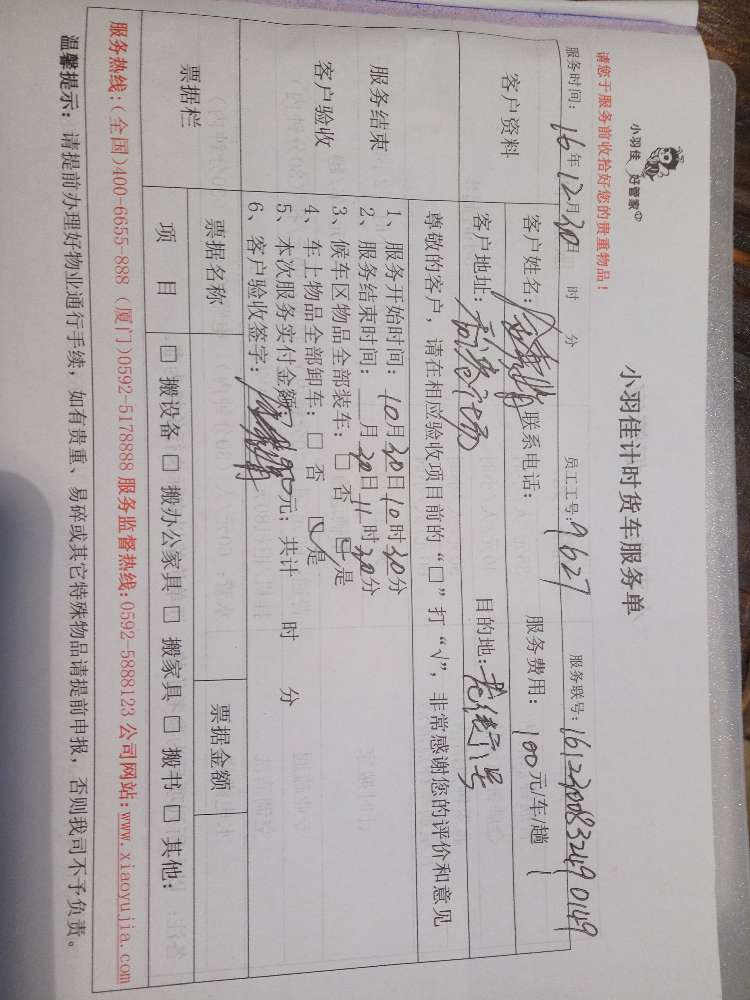 小羽佳 好管家
请您于服务前收拾好您的贵重物品！
小羽佳计时货车服务单
服务时间：16年12月20日 时 分 员工工号：9627 服务联号：
客户资料
客户姓名： 联系电话： 服务费用：100元/车/趟
客户地址： 目的地：
尊敬的客户，请在相应验收项目前的“□”打“√”，非常感谢您的评价和意见
服务结束
客户验收
1、服务开始时间：10月20日10时30分
2、服务结束时间： 月20日11时20分
3、候车区物品全部装车：□ 否 ☑ 是
4、车上物品全部卸车：□ 否 ☑ 是
5、本次服务实付金额： 元；共计 时 分
6、客户验收签字：
票据栏 票据名称 票据金额
项 目 □ 搬设备 □ 搬办公家具 □ 搬家具 □ 搬书 □ 其他：
服务热线：(全国)400-6655-888 (厦门)0592-5178888 服务监督热线：0592-5888123 公司网站：www.xiaoyujia.com
温馨提示：请提前办理好物业通行手续，如有贵重、易碎或其它特殊物品请提前申报，否则我司不予负责。